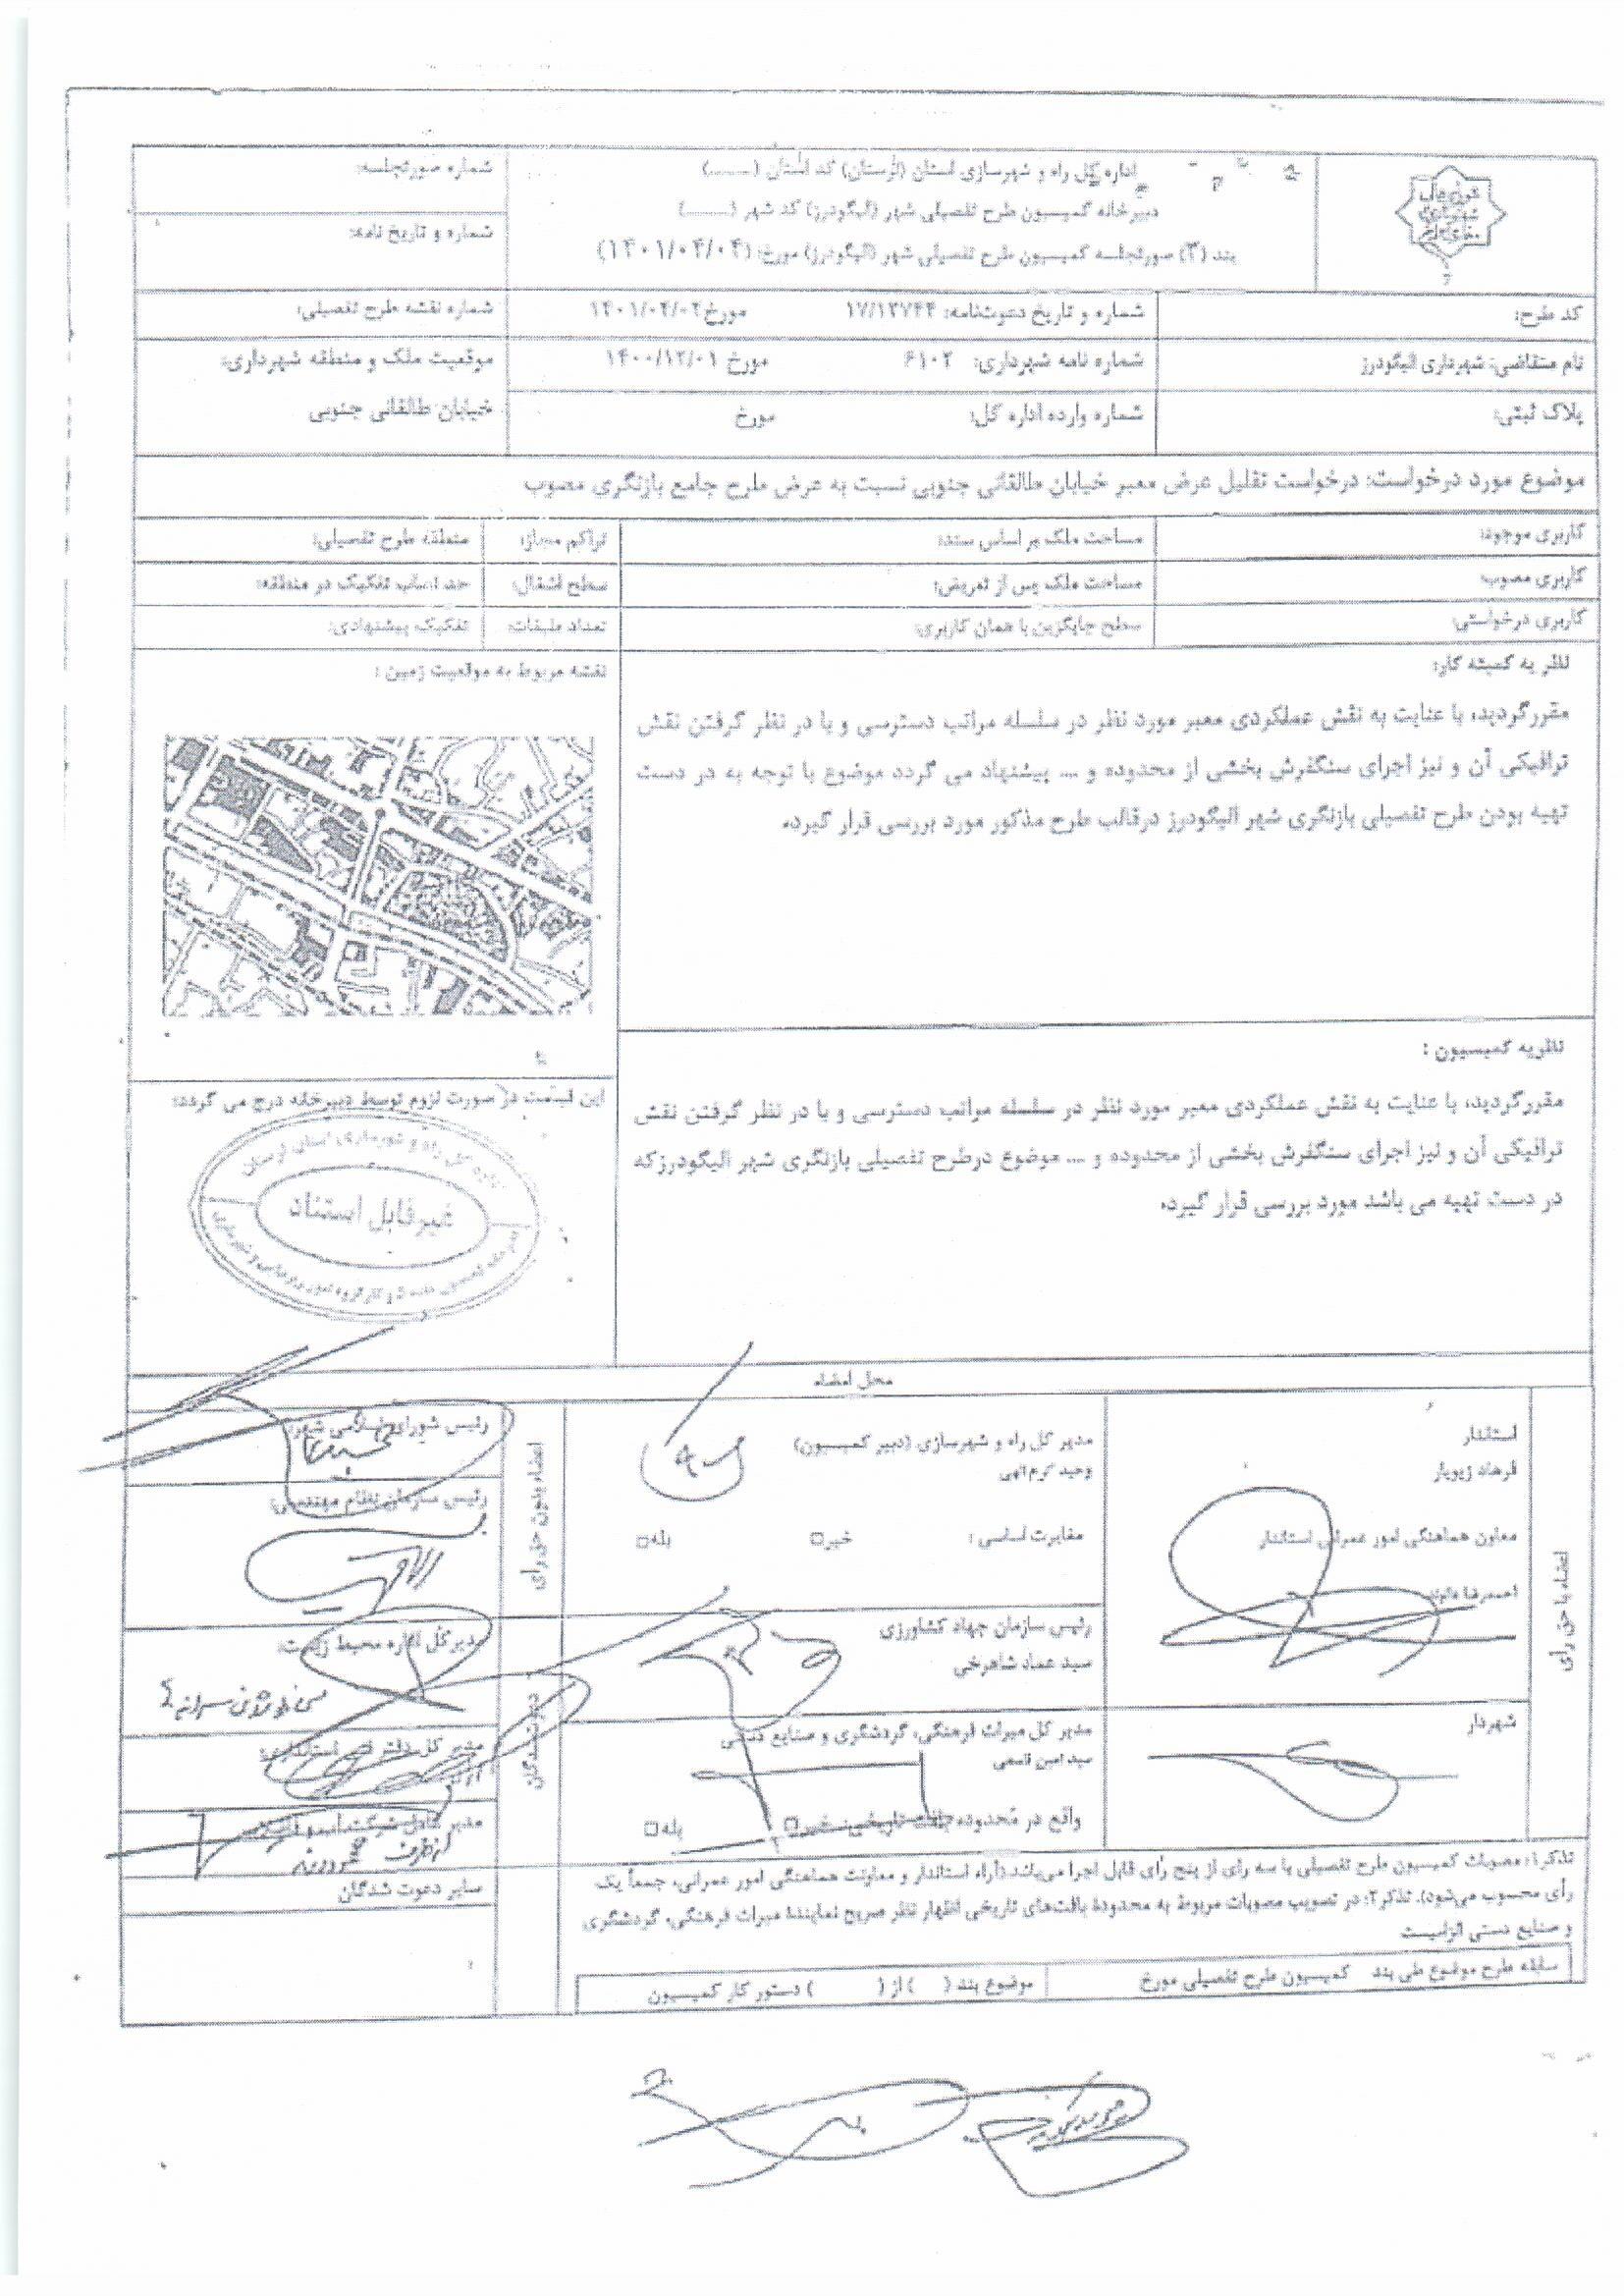 اداره کل راه و شهرسازی استان (لرستان) کد استان (......)
دبیرخانه کمیسیون طرح تفصیلی شهر (الیگودرز) کد شهر (......)
بند (۳) صورتجلسه کمیسیون طرح تفصیلی شهر (الیگودرز) مورخ: (۱۴۰۱/۰۴/۰۴)
شماره صورتجلسه:
شماره و تاریخ نامه:
کد طرح:
شماره و تاریخ دعوتنامه: ۱۷/۱۳۷۴۴ مورخ ۱۴۰۱/۰۴/۰۲
شماره نقشه طرح تفصیلی:
نام متقاضی: شهرداری الیگودرز
شماره نامه شهرداری: ۶۱۰۲ مورخ ۱۴۰۰/۱۲/۰۱
موقعیت ملک و منطقه شهرداری:
خیابان طالقانی جنوبی
پلاک ثبتی:
شماره وارده اداره کل: مورخ
موضوع مورد درخواست: درخواست تقلیل عرض معبر خیابان طالقانی جنوبی نسبت به عرض طرح جامع بازنگری مصوب
کاربری موجود:
مساحت ملک بر اساس سند:
تراکم مجاز:
منطقه طرح تفصیلی:
کاربری مصوب:
مساحت ملک پس از تعریض:
سطح اشغال:
حد نصاب تفکیک در منطقه:
کاربری درخواستی:
سطح جایگزین با همان کاربری:
تعداد طبقات:
تفکیک پیشنهادی:
نظریه کمیته کار:
مقررگردید، با عنایت به نقش عملکردی معبر مورد نظر در سلسله مراتب دسترسی و با در نظر گرفتن نقش
ترافیکی آن و نیز اجرای سنگفرش بخشی از محدوده و ... پیشنهاد می گردد موضوع با توجه به در دست
تهیه بودن طرح تفصیلی بازنگری شهر الیگودرز درقالب طرح مذکور مورد بررسی قرار گیرد.
نقشه مربوط به موقعیت زمین :
نظریه کمیسیون :
مقررگردید، با عنایت به نقش عملکردی معبر مورد نظر در سلسله مراتب دسترسی و با در نظر گرفتن نقش
ترافیکی آن و نیز اجرای سنگفرش بخشی از محدوده و ... موضوع درطرح تفصیلی بازنگری شهر الیگودرزکه
در دست تهیه می باشد مورد بررسی قرار گیرد.
این قسمت در صورت لزوم توسط دبیرخانه درج می گردد:
اداره کل راه و شهرسازی استان لرستان
غیر قابل استناد
محل امضاء
اعضاء با حق رأی
استاندار
فرهاد زیویار
معاون هماهنگی امور عمرانی استاندار
احمدرضا
شهردار
مدیر کل راه و شهرسازی (دبیر کمیسیون)
وحید کرم الهی
مغایرت اساسی : خیر□ بله□
رئیس سازمان جهاد کشاورزی
سید عماد شاهرخی
مدیر کل میراث فرهنگی، گردشگری و صنایع دستی
سید امین قاسمی
واقع در محدوده بافت تاریخی: خیر□ بله□
اعضاء بدون حق رأی
رئیس شورای اسلامی شهر:
رئیس سازمان نظام مهندسی:
دعوت شدگان
مدیرکل اداره محیط زیست:
مدیر کل دفتر فنی استانداری:
مدیر عامل شرکت آب و فاضلاب
سایر دعوت شدگان
تذکر۱: مصوبات کمیسیون طرح تفصیلی با سه رای از پنج رأی قابل اجرا می‌باشد (آراء استاندار و معاونت هماهنگی امور عمرانی، جمعاً یک
رأی محسوب می‌شود). تذکر۲: در تصویب مصوبات مربوط به محدودۀ بافت‌های تاریخی اظهار نظر صریح نمایندۀ میراث فرهنگی، گردشگری
و صنایع دستی الزامیست
سابقه طرح موضوع طی بند کمیسیون طرح تفصیلی مورخ
موضوع بند ( ) از ( ) دستور کار کمیسیون